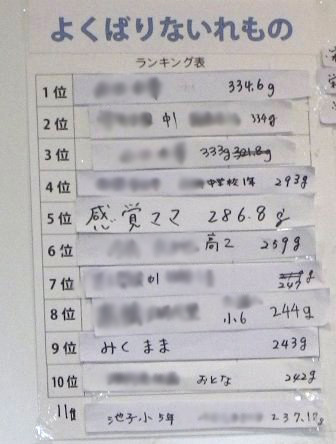 よくばりないれもの
ランキング表
1位 334.6g
2位 中1 334g
3位 333g 321.8g
4位 中学校1年 293g
5位 感覚ママ 286.8g
6位 高2 259g
7位 中1 247g
8位 小6 244g
9位 みくまま 243g
10位 おとな 242g
11位 池子小5年 237.17g